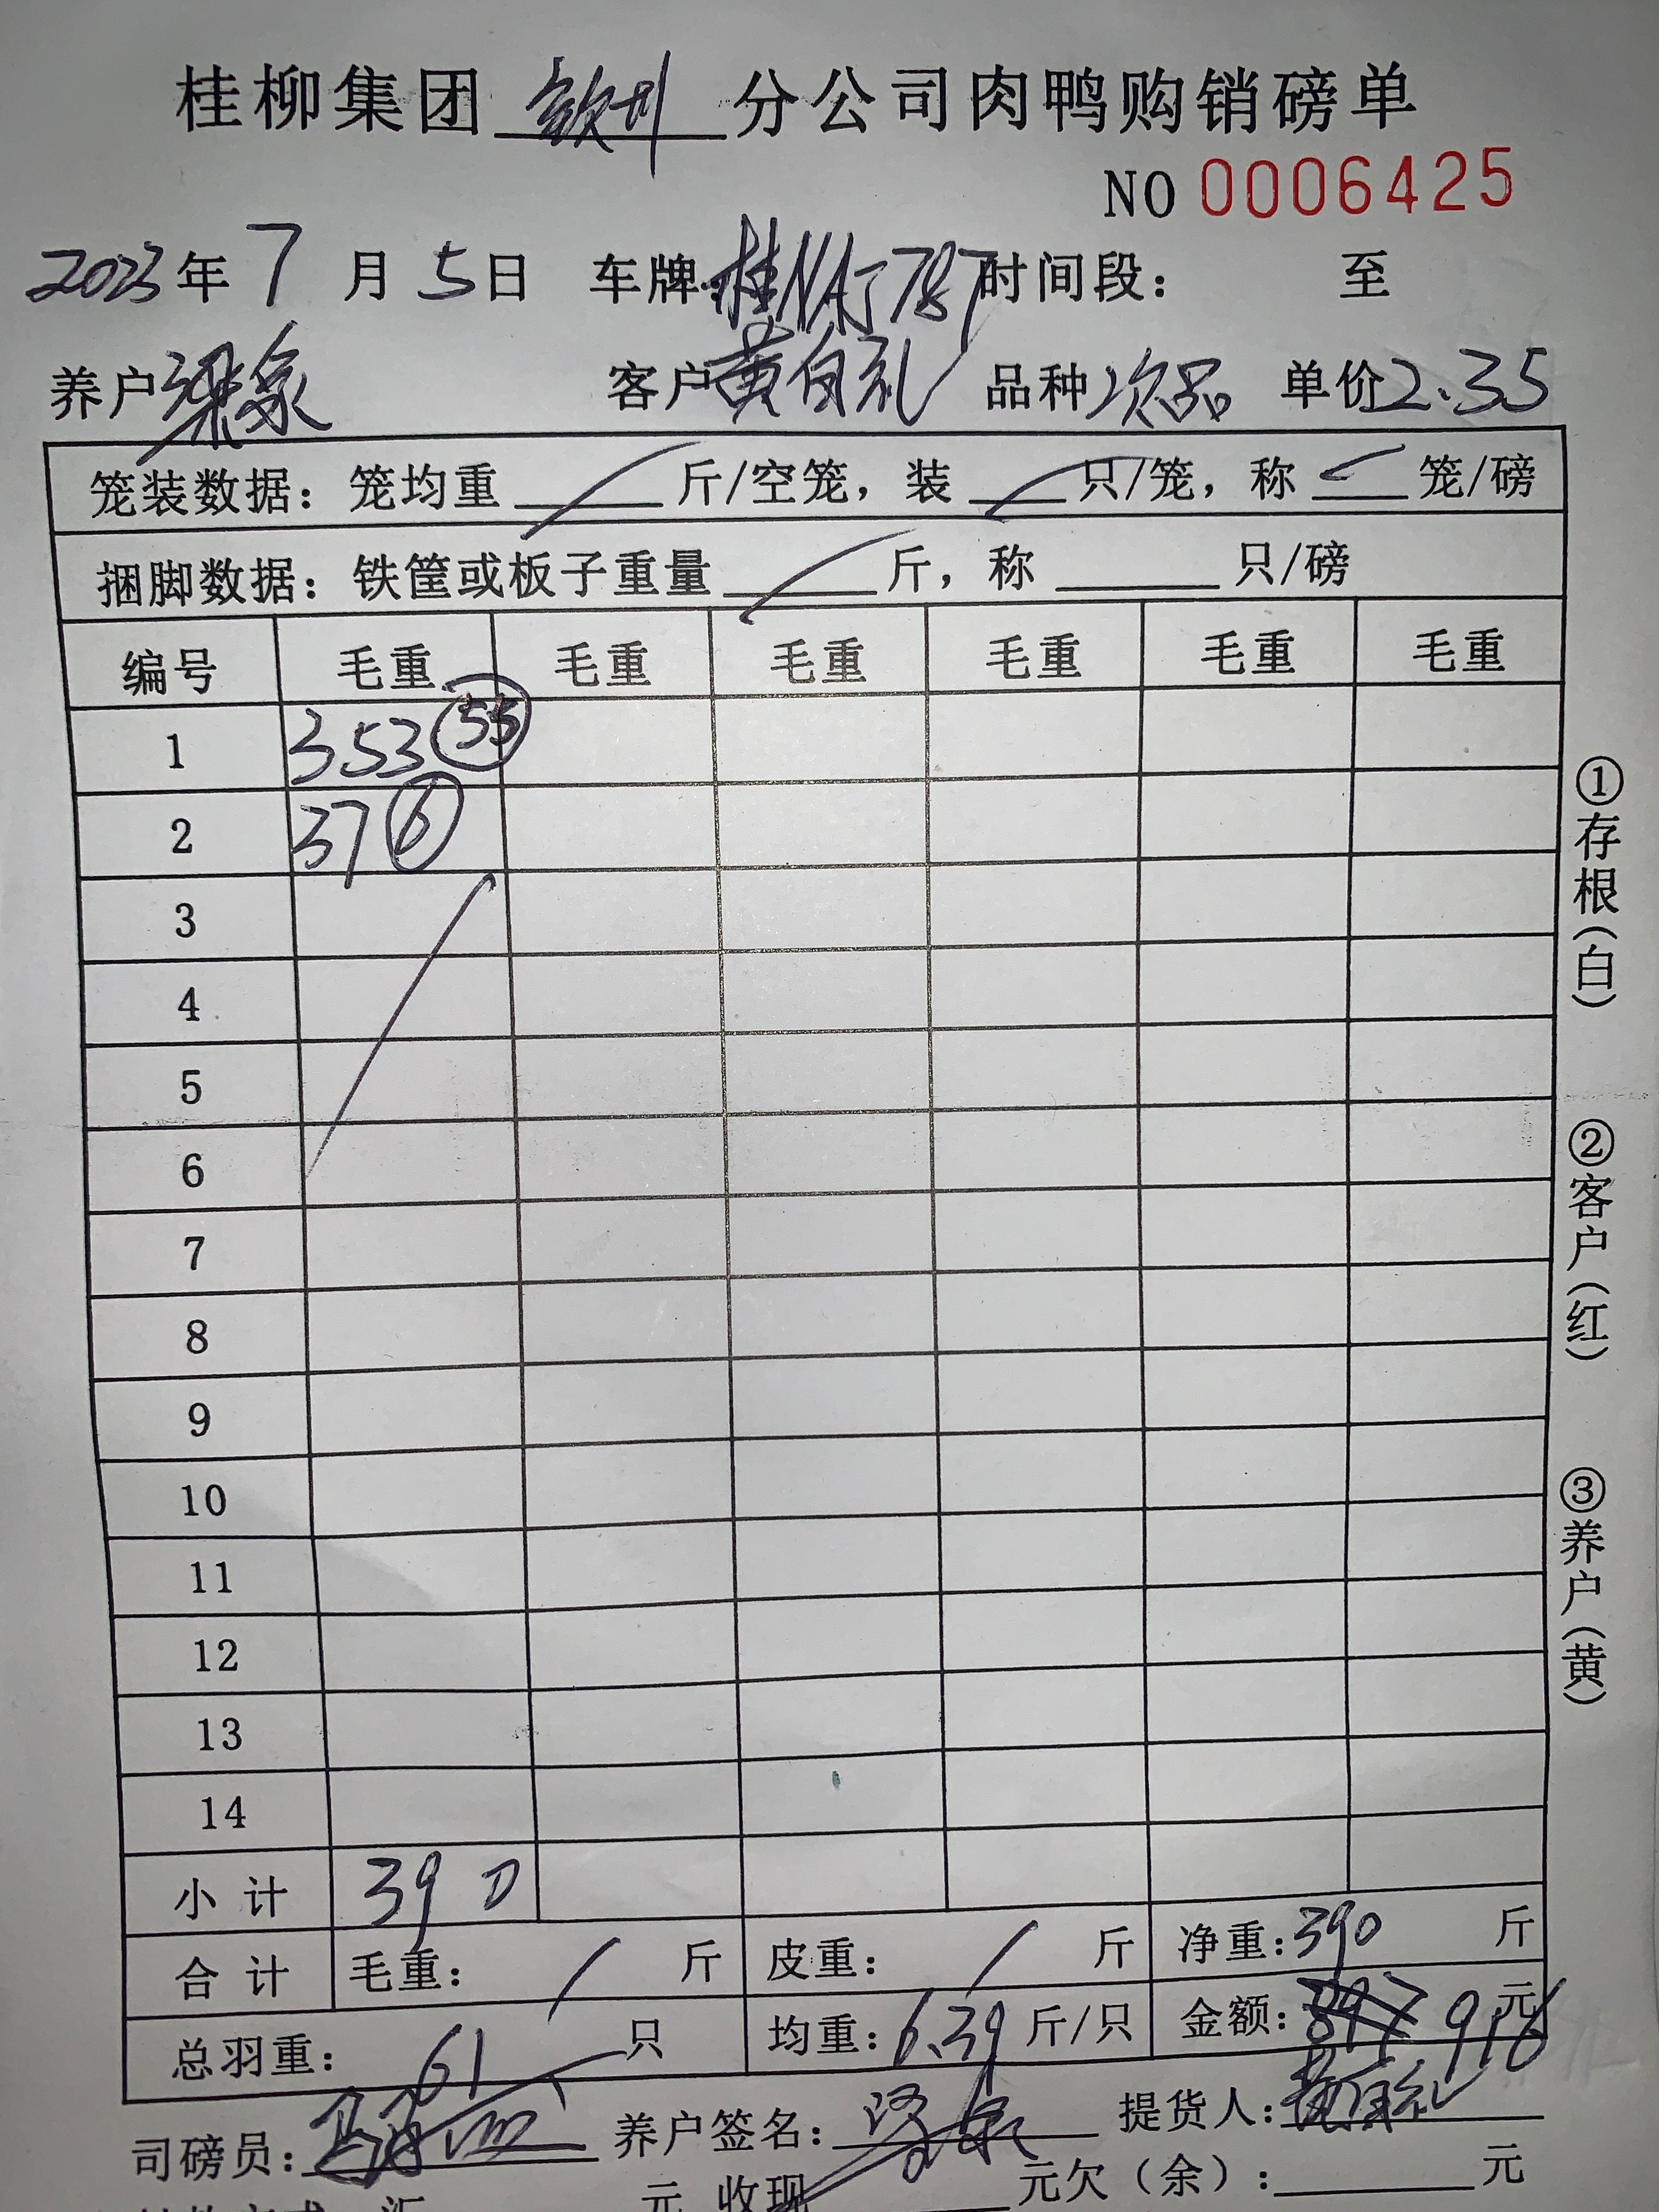 桂柳集团 钦州 分公司肉鸭购销磅单
NO 0006425
2023年 7 月 5日 车牌:桂NAJ787 时间段: 至
养户 梁泉 客户 黄自礼 品种 次品 单价 2.35
笼装数据:笼均重 / 斤/空笼,装 / 只/笼,称 / 笼/磅
捆脚数据:铁筐或板子重量 / 斤,称 只/磅
编号 毛重 毛重 毛重 毛重 毛重 毛重
1 353 55
2 37 6
3
4
5
6
7
8
9
10
11
12
13
14
小计 390
合计 毛重: / 斤 皮重: / 斤 净重:390 斤
总羽重: 61 只 均重:6.39 斤/只 金额: 897 916 元
司磅员: 养户签名:梁泉 提货人:黄自礼
元 收现 元欠(余): 元
①存根(白)
②客户(红)
③养户(黄)